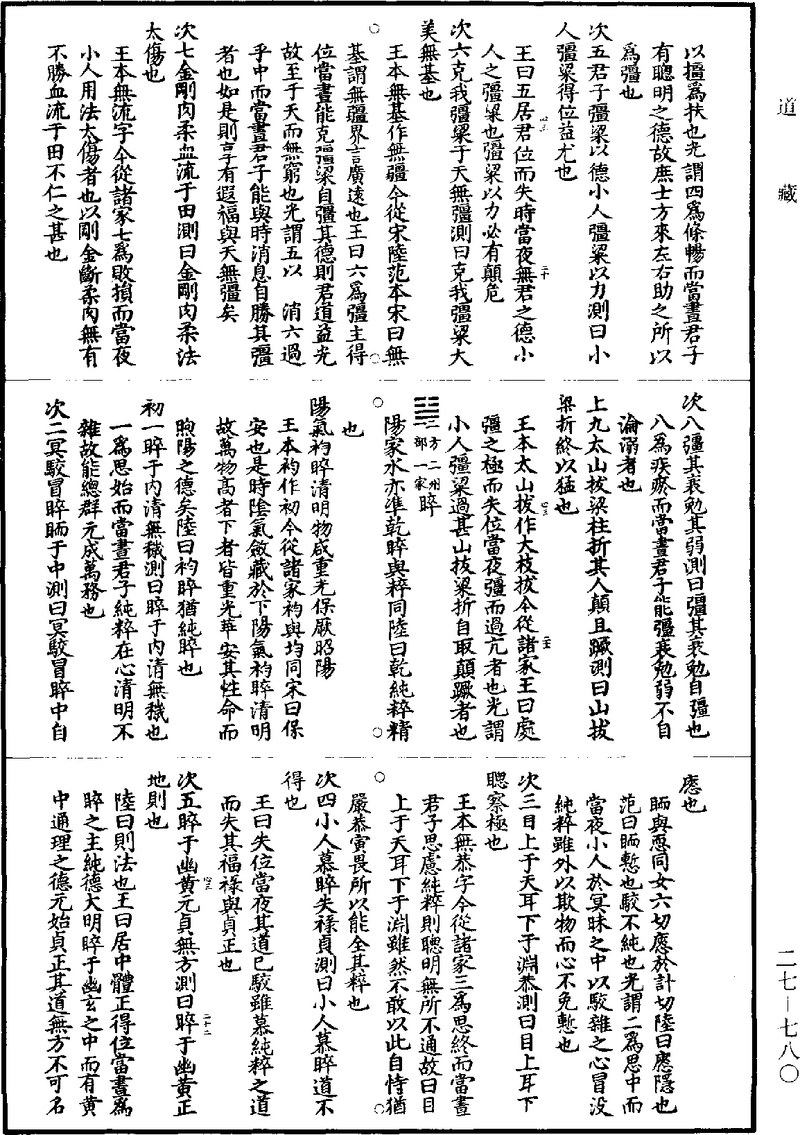 道藏
以彊為扶也光謂四為條暢而當晝君子
有聰明之德故庶士方來左右助之所以
為彊也
次五君子彊梁以德小人彊梁以力測曰小
人彊梁得位益尤也
王曰五居君位而失時當夜無君之德小
人之彊梁也彊梁以力必有顛危
次六克我彊梁于天無彊測曰克我彊梁大
美無基也
王本無基作無疆今從宋陸范本宋曰無
基謂無疆界言廣遠也王曰六為彊主得
位當晝能克彊梁自彊其德則君道益光
故至于天而無窮也光謂五以 消六過
乎中而當晝君子能與時消息自勝其彊
者也如是則享有遐福與天無彊矣
次七金剛肉柔血流于田測曰金剛肉柔法
太傷也
王本無流字今從諸家七為敗損而當夜
小人用法太傷者也以剛金斷柔肉無有
不勝血流于田不仁之甚也
次八彊其衰勉其弱測曰彊其衰勉自彊也
八為疾瘀而當晝君子能彊衰勉弱不自
淪溺者也
上九太山拔梁柱折其人顛且蹶測曰山拔
梁折終以猛也
王本太山拔作大枝拔今從諸家王曰處
彊之極而失位當夜彊而過亢者也光謂
小人彊梁過甚山拔梁折自取顛蹶者也
二方二州二部一家睟
陽家水亦準乾睟與粹同陸曰乾純粹精
也
陽氣袀睟清明物咸重光保厥昭陽
王本袀作初今從諸家袀與均同宋曰保
安也是時陰氣斂藏於下陽氣袀睟清明
故萬物高者下者皆重光華安其性命而
煦陽之德矣陸曰袀睟猶純睟也
初一睟于內清無穢測曰睟于內清無穢也
一為思始而當晝君子純粹在心清明不
雜故能總群元成萬務也
次二冥駮冒睟䏔于中測曰冥駮冒睟中自
應也
䏔與恧同女六切應於計切陸曰應隱也
范曰䏔慙也駮不純也光謂二為思中而
當夜小人於冥昧之中以駮雜之心冒沒
純粹雖外以欺物而心不免慙也
次三目上于天耳下于淵恭測曰目上耳下
聰察極也
王本無恭字今從諸家三為思終而當晝
君子思慮純粹則聰明無所不通故曰目
上于天耳下于淵雖然不敢以此自恃猶
嚴恭寅畏所以能全其粹也
次四小人慕睟失祿貞測曰小人慕睟道不
得也
王曰失位當夜其道已駮雖慕純粹之道
而失其福祿與貞正也
次五睟于幽黃元貞無方測曰睟于幽黃正
地則也
陸曰則法也王曰居中體正得位當晝為
睟之主純德大明睟于幽玄之中而有黃
中通理之德元始貞正其道無方不可名
二七－七八〇